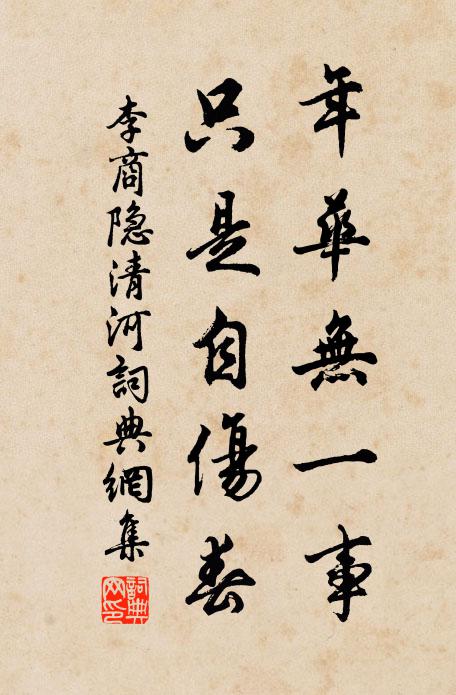 年華無一事
只是自傷春
李商隐清河詞典網集
詞典
网印